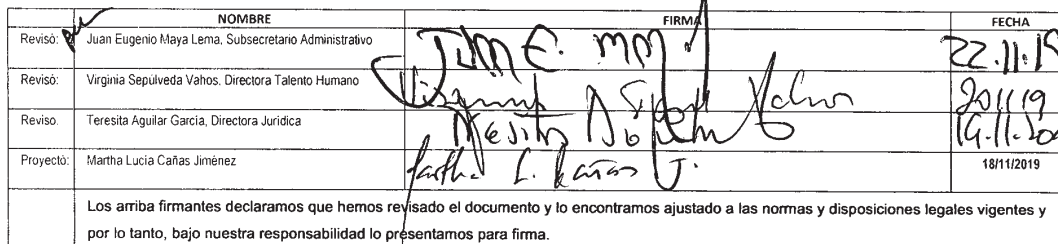 NOMBRE FIRMA FECHA
Revisó: Juan Eugenio Maya Lema, Subsecretario Administrativo 22.11.19
Revisó: Virginia Sepúlveda Vahos, Directora Talento Humano 201119
Reviso. Teresita Aguilar García, Directora Jurídica
Proyectó: Martha Lucía Cañas Jiménez Martha L. Cañas J. 18/11/2019
Los arriba firmantes declaramos que hemos revisado el documento y lo encontramos ajustado a las normas y disposiciones legales vigentes y
por lo tanto, bajo nuestra responsabilidad lo presentamos para firma.